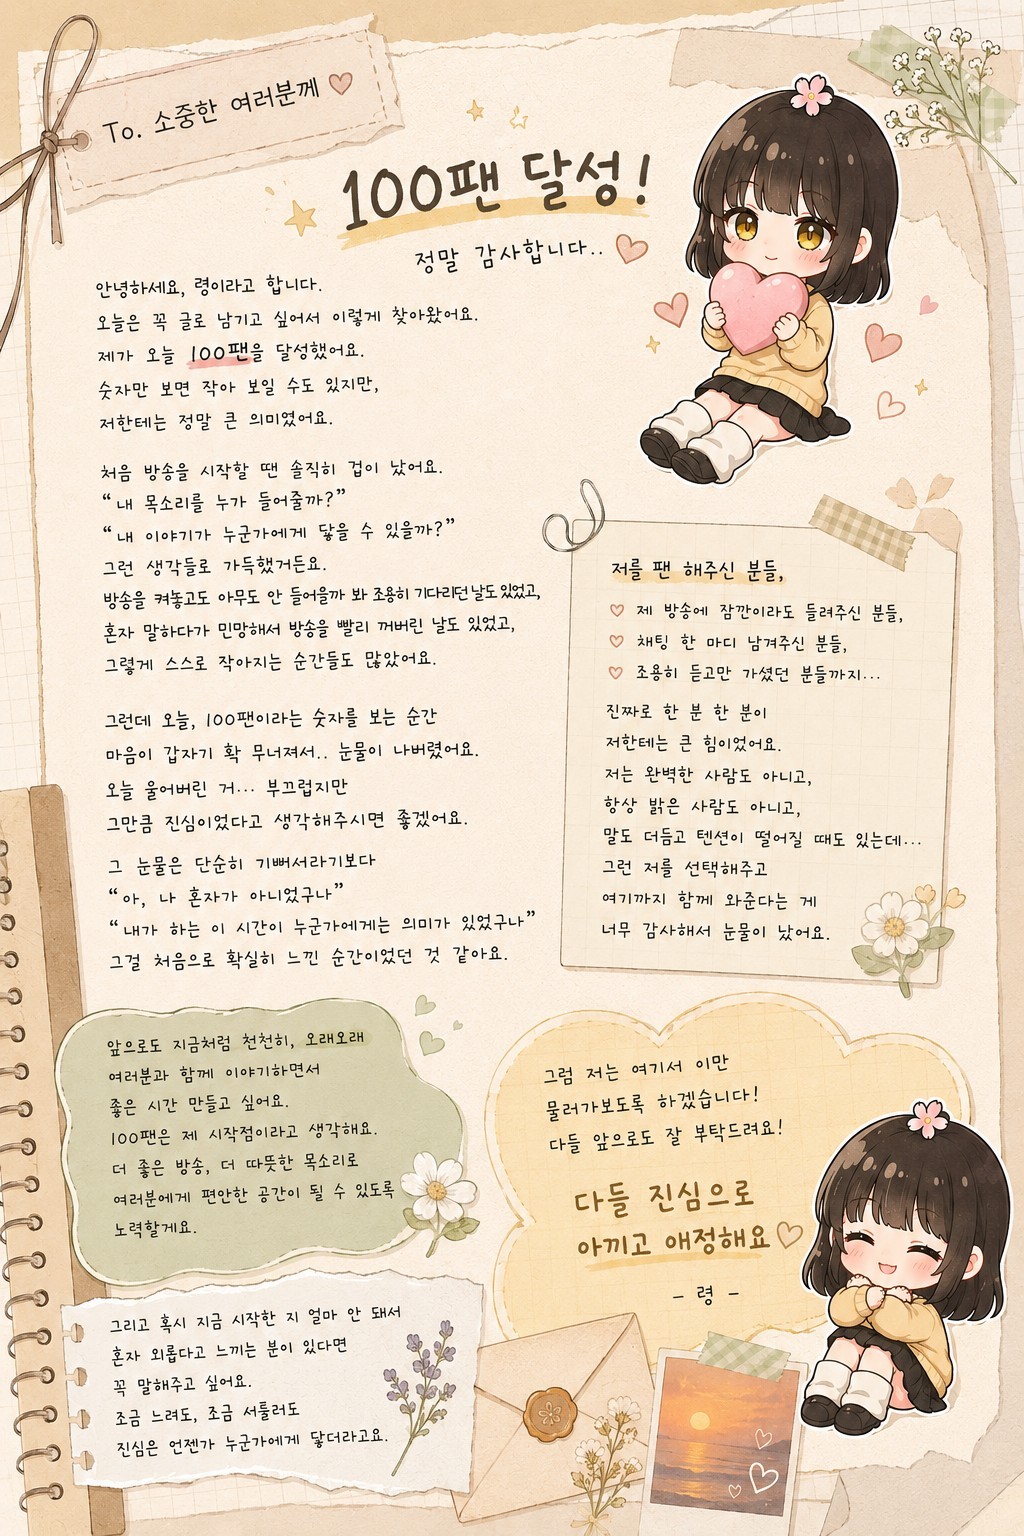 To. 소중한 여러분께
100팬 달성!
정말 감사합니다..
안녕하세요, 령이라고 합니다.
오늘은 꼭 글로 남기고 싶어서 이렇게 찾아왔어요.
제가 오늘 100팬을 달성했어요.
숫자만 보면 작아 보일 수도 있지만,
저한테는 정말 큰 의미였어요.
처음 방송을 시작할 땐 솔직히 겁이 났어요.
“내 목소리를 누가 들어줄까?”
“내 이야기가 누군가에게 닿을 수 있을까?”
그런 생각들로 가득했거든요.
방송을 켜놓고도 아무도 안 들어올까 봐 조용히 기다리던 날도 있었고,
혼자 말하다가 민망해서 방송을 빨리 꺼버린 날도 있었고,
그렇게 스스로 작아지는 순간들도 많았어요.
그런데 오늘, 100팬이라는 숫자를 보는 순간
마음이 갑자기 확 무너져서.. 눈물이 나버렸어요.
오늘 울어버린 거... 부끄럽지만
그만큼 진심이었다고 생각해주시면 좋겠어요.
그 눈물은 단순히 기뻐서라기보다
“아, 나 혼자가 아니었구나”
“내가 하는 이 시간이 누군가에게는 의미가 있었구나”
그걸 처음으로 확실히 느낀 순간이었던 것 같아요.
저를 팬 해주신 분들,
제 방송에 잠깐이라도 들려주신 분들,
채팅 한 마디 남겨주신 분들,
조용히 듣고만 가셨던 분들까지...
진짜로 한 분 한 분이
저한테는 큰 힘이었어요.
저는 완벽한 사람도 아니고,
항상 밝은 사람도 아니고,
말도 더듬고 텐션이 떨어질 때도 있는데...
그런 저를 선택해주고
여기까지 함께 와준다는 게
너무 감사해서 눈물이 났어요.
앞으로도 지금처럼 천천히, 오래오래
여러분과 함께 이야기하면서
좋은 시간 만들고 싶어요.
100팬은 제 시작점이라고 생각해요.
더 좋은 방송, 더 따뜻한 목소리로
여러분에게 편안한 공간이 될 수 있도록
노력할게요.
그리고 혹시 지금 시작한 지 얼마 안 돼서
혼자 외롭다고 느끼는 분이 있다면
꼭 말해주고 싶어요.
조금 느려도, 조금 서툴러도
진심은 언젠가 누군가에게 닿더라고요.
그럼 저는 여기서 이만
물러가보도록 하겠습니다!
다들 앞으로도 잘 부탁드려요!
다들 진심으로
아끼고 애정해요
- 령 -